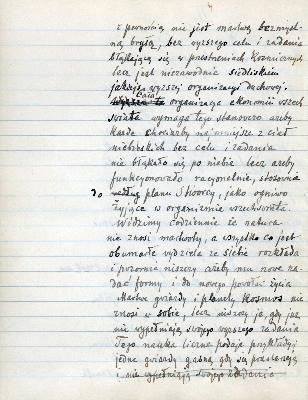 z pewnością nie jest martwą bezmyśl-
ną bryłą, bez wyższego celu i zadania
błąkającą się w przestrzeniach kosmicznych
lecz jest niezawodnie siedliskiem
jakiejś wyższej organizacji duchowej.
Cała organizacja ekonomii wszech
świata wymaga tego stanowczo ażeby
każde choćiażby najmniejsze z ciał
niebieskich bez celu i zadania
nie błąkało się po niebie lecz ażeby
funkcjonowało racjonalnie, stosownie
do planu Stwórcy, jako ogniwo
żyjące w organizmie wszechświata.
Widzimy codziennie że natura
nie znosi martwoty, a wszystko co jest
obumarłe wydziela ze siebie rozkłada
i pozornie niszczy ażeby mu nowe na
dać formy i do nowego powołać życia
Martwe gwiazdy i planety kosmos nie
znosi w sobie, lecz niszczy je gdy już
nie wypełniają swojego wyższego zadania
Tego nauka liczne podaje przykłady;
jedne gwiazdy gasną gdy są
i nie wypełniają swojego zadania